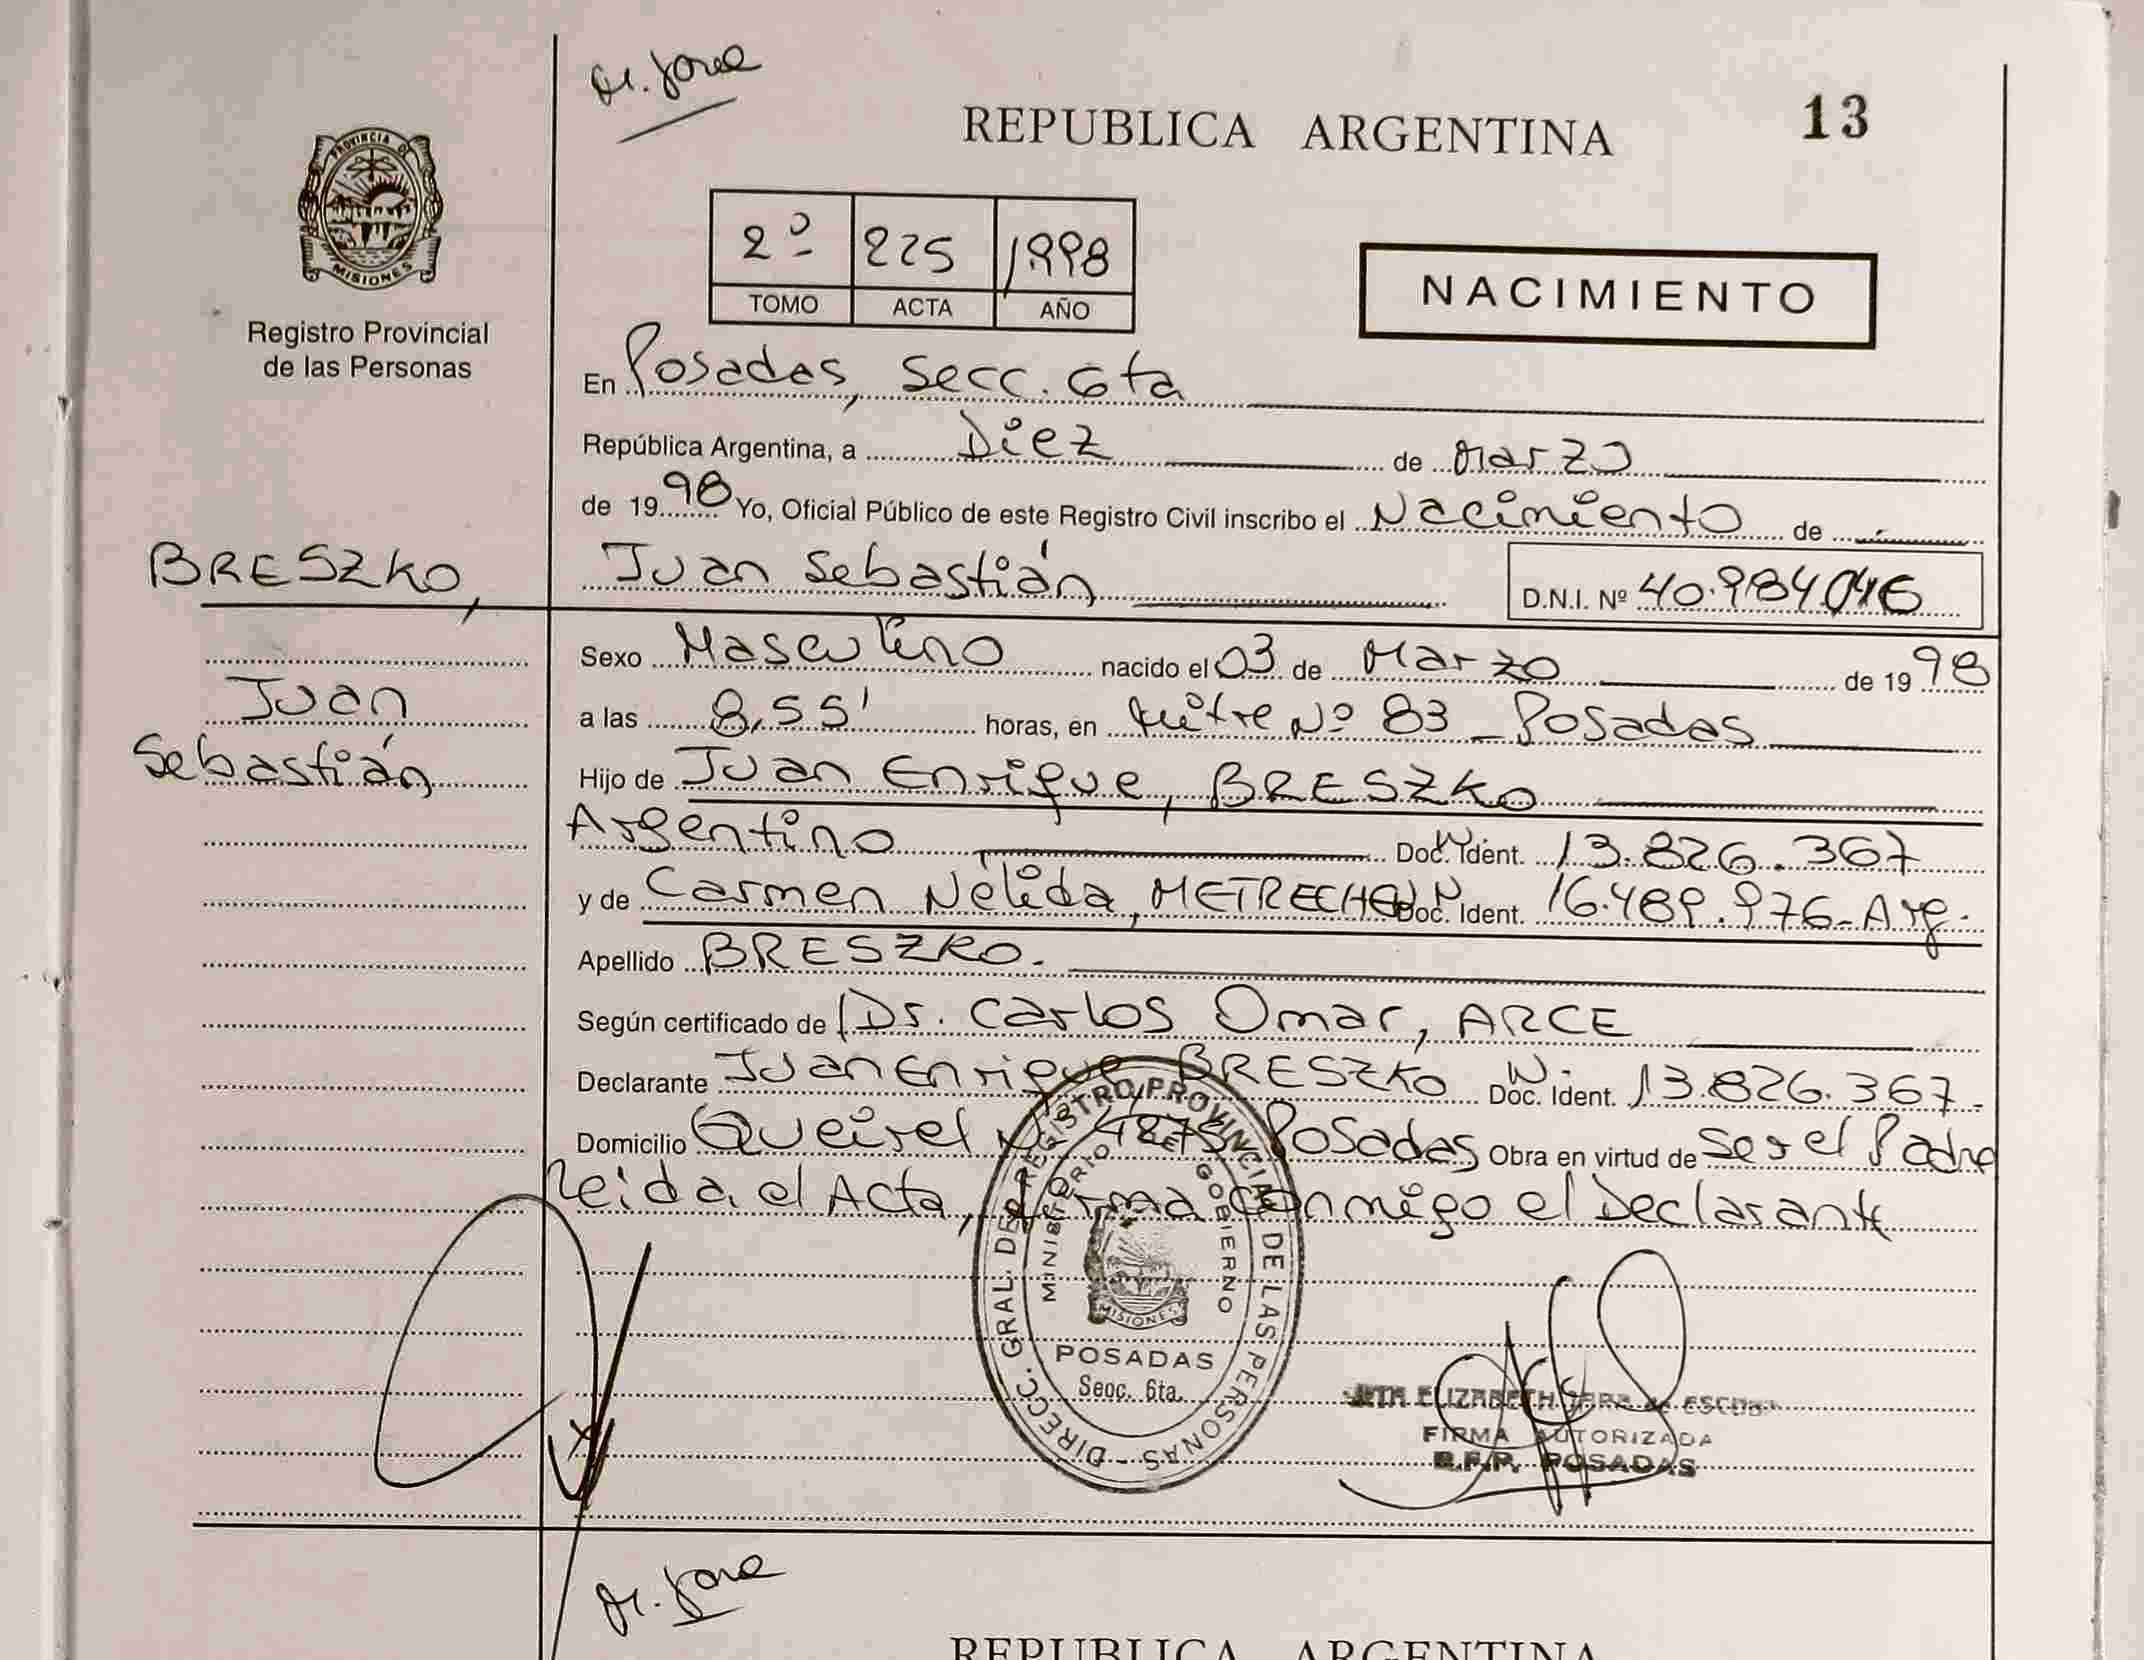 M. Jose
REPUBLICA ARGENTINA
13
PROVINCIA DE
MISIONES
Registro Provincial
de las Personas
2º 225 1998
TOMO ACTA AÑO
NACIMIENTO
En Posadas, Secc. 6ta
República Argentina, a Diez de Marzo
de 1998 Yo, Oficial Público de este Registro Civil inscribo el Nacimiento de
BRESZKO, Juan Sebastián D.N.I. Nº 40.984.046
Juan
Sebastián
Sexo Masculino nacido el 03 de Marzo de 1998
a las 8,55' horas, en Mitre Nº 83 - Posadas
Hijo de Juan Enrique, BRESZKO
Argentino Doc. Ident. 13.826.367
y de Carmen Nélida, Doc. Ident. 16.489.976-Arg.
Apellido BRESZKO.
Según certificado de Dr. Carlos Omar, ARCE
Declarante Juan Enrique BRESZKO Doc. Ident. 13.826.367-
Domicilio Queirel Nº 4875 Posadas Obra en virtud de ser el Padre
leida el Acta, firma conmigo el Declarante
DIRECC. GRAL. DEL REGISTRO PROVINCIAL DE LAS PERSONAS -
MINISTERIO DE GOBIERNO
MISIONES
POSADAS
Secc. 6ta.
ELIZABETH
FIRMA AUTORIZADA
POSADAS
M. Jose
REPUBLICA ARGENTINA